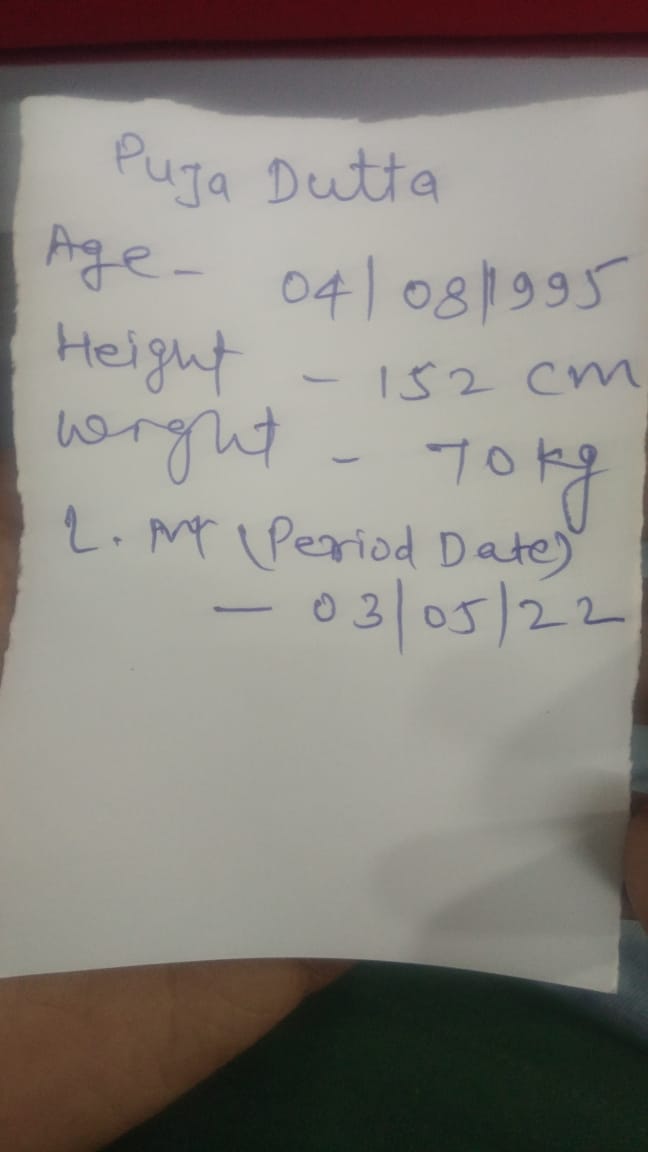 Puja Dutta
Age - 04/08/1995
Height - 152 cm
Weight - 70 kg
L. (Period Date)
- 03/05/22